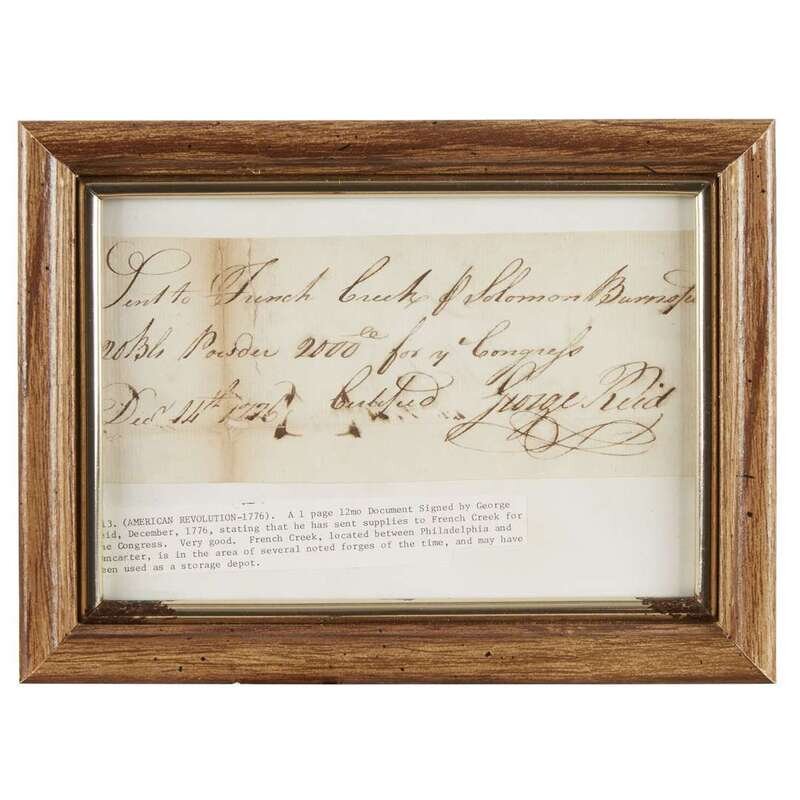 Sent to French Creek ⅌ Solomon
20 Bls Powder 2000 lb for ye Congress
Decr 14th 1776 Certified George Reid
13. (AMERICAN REVOLUTION-1776). A 1 page 12mo Document Signed by George
eid, December, 1776, stating that he has sent supplies to French Creek for
he Congress. Very good. French Creek, located between Philadelphia and
ancaster, is in the area of several noted forges of the time, and may have
een used as a storage depot.